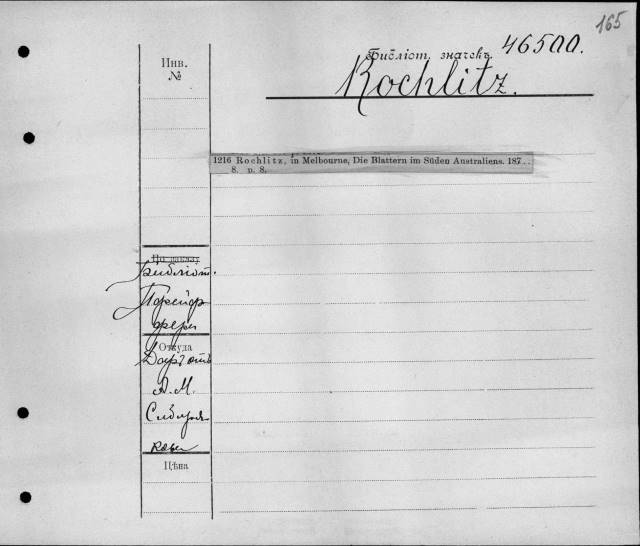 165
Библіот. значекъ. 46500.
Rochlitz.
Инв.
№
1216 Rochlitz, in Melbourne, Die Blattern im Süden Australiens. 187 . .
8. p. 8.
По заказу
Библіот.
Порейф
фери
Откуда
Даръ отъ
А. М.
Сибиря
кова
Цѣна